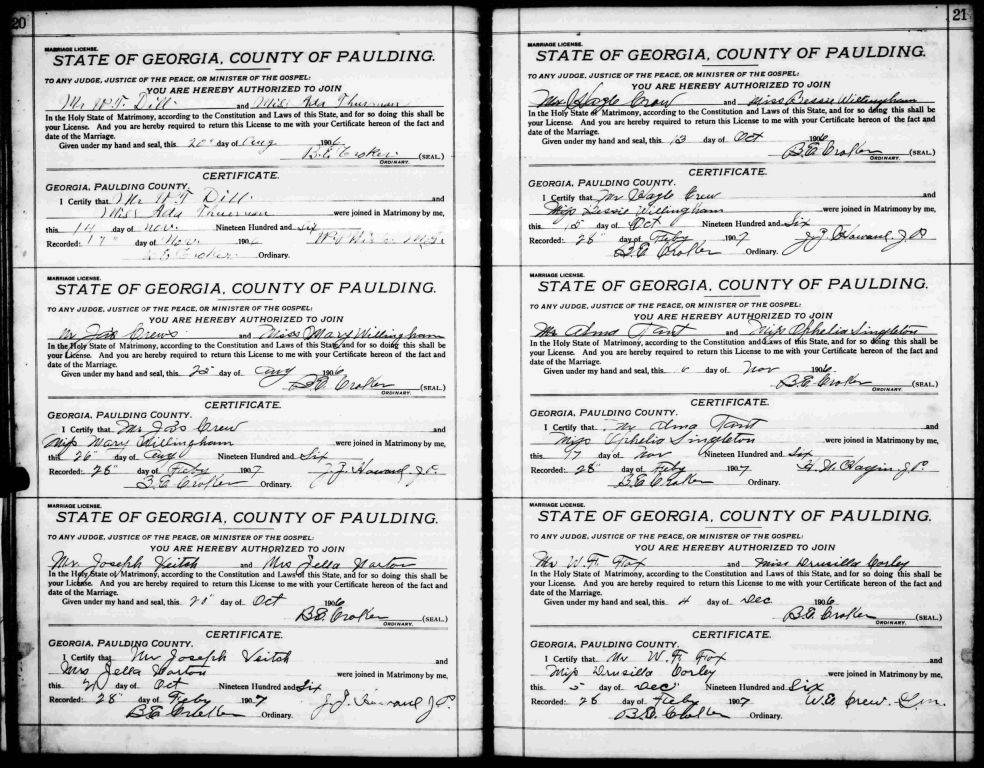 20
MARRIAGE LICENSE.
STATE OF GEORGIA, COUNTY OF PAULDING.
TO ANY JUDGE, JUSTICE OF THE PEACE, OR MINISTER OF THE GOSPEL:
YOU ARE HEREBY AUTHORIZED TO JOIN
Mr W.T. Dill and Miss Thurman
In the Holy State of Matrimony, according to the Constitution and Laws of this State, and for so doing this shall be
your License. And you are hereby required to return this License to me with your Certificate hereon of the fact and
date of the Marriage.
Given under my hand and seal, this 20" day of Aug 1906
B.E. Croker (SEAL.)
ORDINARY.
CERTIFICATE.
GEORGIA, PAULDING COUNTY.
I Certify that Mr W.T. Dill and
Miss Ada Thurman were joined in Matrimony by me,
this 14 day of Nov. Nineteen Hundred and Six
Recorded: 17" day of Nov. 190
B.E. Croker Ordinary.
MARRIAGE LICENSE.
STATE OF GEORGIA, COUNTY OF PAULDING.
TO ANY JUDGE, JUSTICE OF THE PEACE, OR MINISTER OF THE GOSPEL:
YOU ARE HEREBY AUTHORIZED TO JOIN
Mr Jas Crews and Miss Mary Willingham
In the Holy State of Matrimony, according to the Constitution and Laws of this State, and for so doing this shall be
your License. And you are hereby required to return this License to me with your Certificate hereon of the fact and
date of the Marriage.
Given under my hand and seal, this day of Aug 1906
B.E. Croker (SEAL.)
ORDINARY.
CERTIFICATE.
GEORGIA, PAULDING COUNTY.
I Certify that Mr Jas Crew and
Miss Mary Willingham were joined in Matrimony by me,
this 26" day of Aug Nineteen Hundred and Six
Recorded: 28" day of Feby 1907 J.J. Howard, J.P.
B.E. Croker Ordinary.
MARRIAGE LICENSE.
STATE OF GEORGIA, COUNTY OF PAULDING.
TO ANY JUDGE, JUSTICE OF THE PEACE, OR MINISTER OF THE GOSPEL:
YOU ARE HEREBY AUTHORIZED TO JOIN
Mr. Joseph Veitch and Mrs Jella Harton
In the Holy State of Matrimony, according to the Constitution and Laws of this State, and for so doing this shall be
your License. And you are hereby required to return this License to me with your Certificate hereon of the fact and
date of the Marriage.
Given under my hand and seal, this 20" day of Oct 1906
B.E. Croker (SEAL.)
ORDINARY.
CERTIFICATE.
GEORGIA, PAULDING COUNTY.
I Certify that Mr Joseph Veitch and
Mrs Jella Harton were joined in Matrimony by me,
this day of Oct Nineteen Hundred and Six
Recorded: 28" day of Feby 1907 J.J. Howard J.P.
B.E. Croker Ordinary.
21
MARRIAGE LICENSE.
STATE OF GEORGIA, COUNTY OF PAULDING.
TO ANY JUDGE, JUSTICE OF THE PEACE, OR MINISTER OF THE GOSPEL:
YOU ARE HEREBY AUTHORIZED TO JOIN
Mr Hoyle Crow and Miss Bessie Willingham
In the Holy State of Matrimony, according to the Constitution and Laws of this State, and for so doing this shall be
your License. And you are hereby required to return this License to me with your Certificate hereon of the fact and
date of the Marriage.
Given under my hand and seal, this 13 day of Oct 1906
B.E. Croker (SEAL.)
ORDINARY.
CERTIFICATE.
GEORGIA, PAULDING COUNTY.
I Certify that Mr Hoyle Crew and
Miss Bessie Willingham were joined in Matrimony by me,
this day of Oct Nineteen Hundred and Six
Recorded: 28" day of Feby 1907 J.J. Howard, J.P.
B.E. Croker Ordinary.
MARRIAGE LICENSE.
STATE OF GEORGIA, COUNTY OF PAULDING.
TO ANY JUDGE, JUSTICE OF THE PEACE, OR MINISTER OF THE GOSPEL:
YOU ARE HEREBY AUTHORIZED TO JOIN
Mr Alma Tant and Miss Ophelia Singleton
In the Holy State of Matrimony, according to the Constitution and Laws of this State, and for so doing this shall be
your License. And you are hereby required to return this License to me with your Certificate hereon of the fact and
date of the Marriage.
Given under my hand and seal, this day of Nov 1906
B.E. Croker (SEAL.)
ORDINARY.
CERTIFICATE.
GEORGIA, PAULDING COUNTY.
I Certify that Mr Alma Tant and
Miss Ophelia Singleton were joined in Matrimony by me,
this day of Nov Nineteen Hundred and Six
Recorded: 28" day of Feby 1907 J.P.
B.E. Croker Ordinary.
MARRIAGE LICENSE.
STATE OF GEORGIA, COUNTY OF PAULDING.
TO ANY JUDGE, JUSTICE OF THE PEACE, OR MINISTER OF THE GOSPEL:
YOU ARE HEREBY AUTHORIZED TO JOIN
Mr W.F. Fox and Miss Drusilla Corley
In the Holy State of Matrimony, according to the Constitution and Laws of this State, and for so doing this shall be
your License. And you are hereby required to return this License to me with your Certificate hereon of the fact and
date of the Marriage.
Given under my hand and seal, this 4 day of Dec 1906
B.E. Croker (SEAL.)
ORDINARY.
CERTIFICATE.
GEORGIA, PAULDING COUNTY.
I Certify that Mr W.F. Fox and
Miss Drusilla Corley were joined in Matrimony by me,
this 5 day of Dec Nineteen Hundred and Six
Recorded: 28 day of Feby 1907 W.E. Crew
B.E. Croker Ordinary.